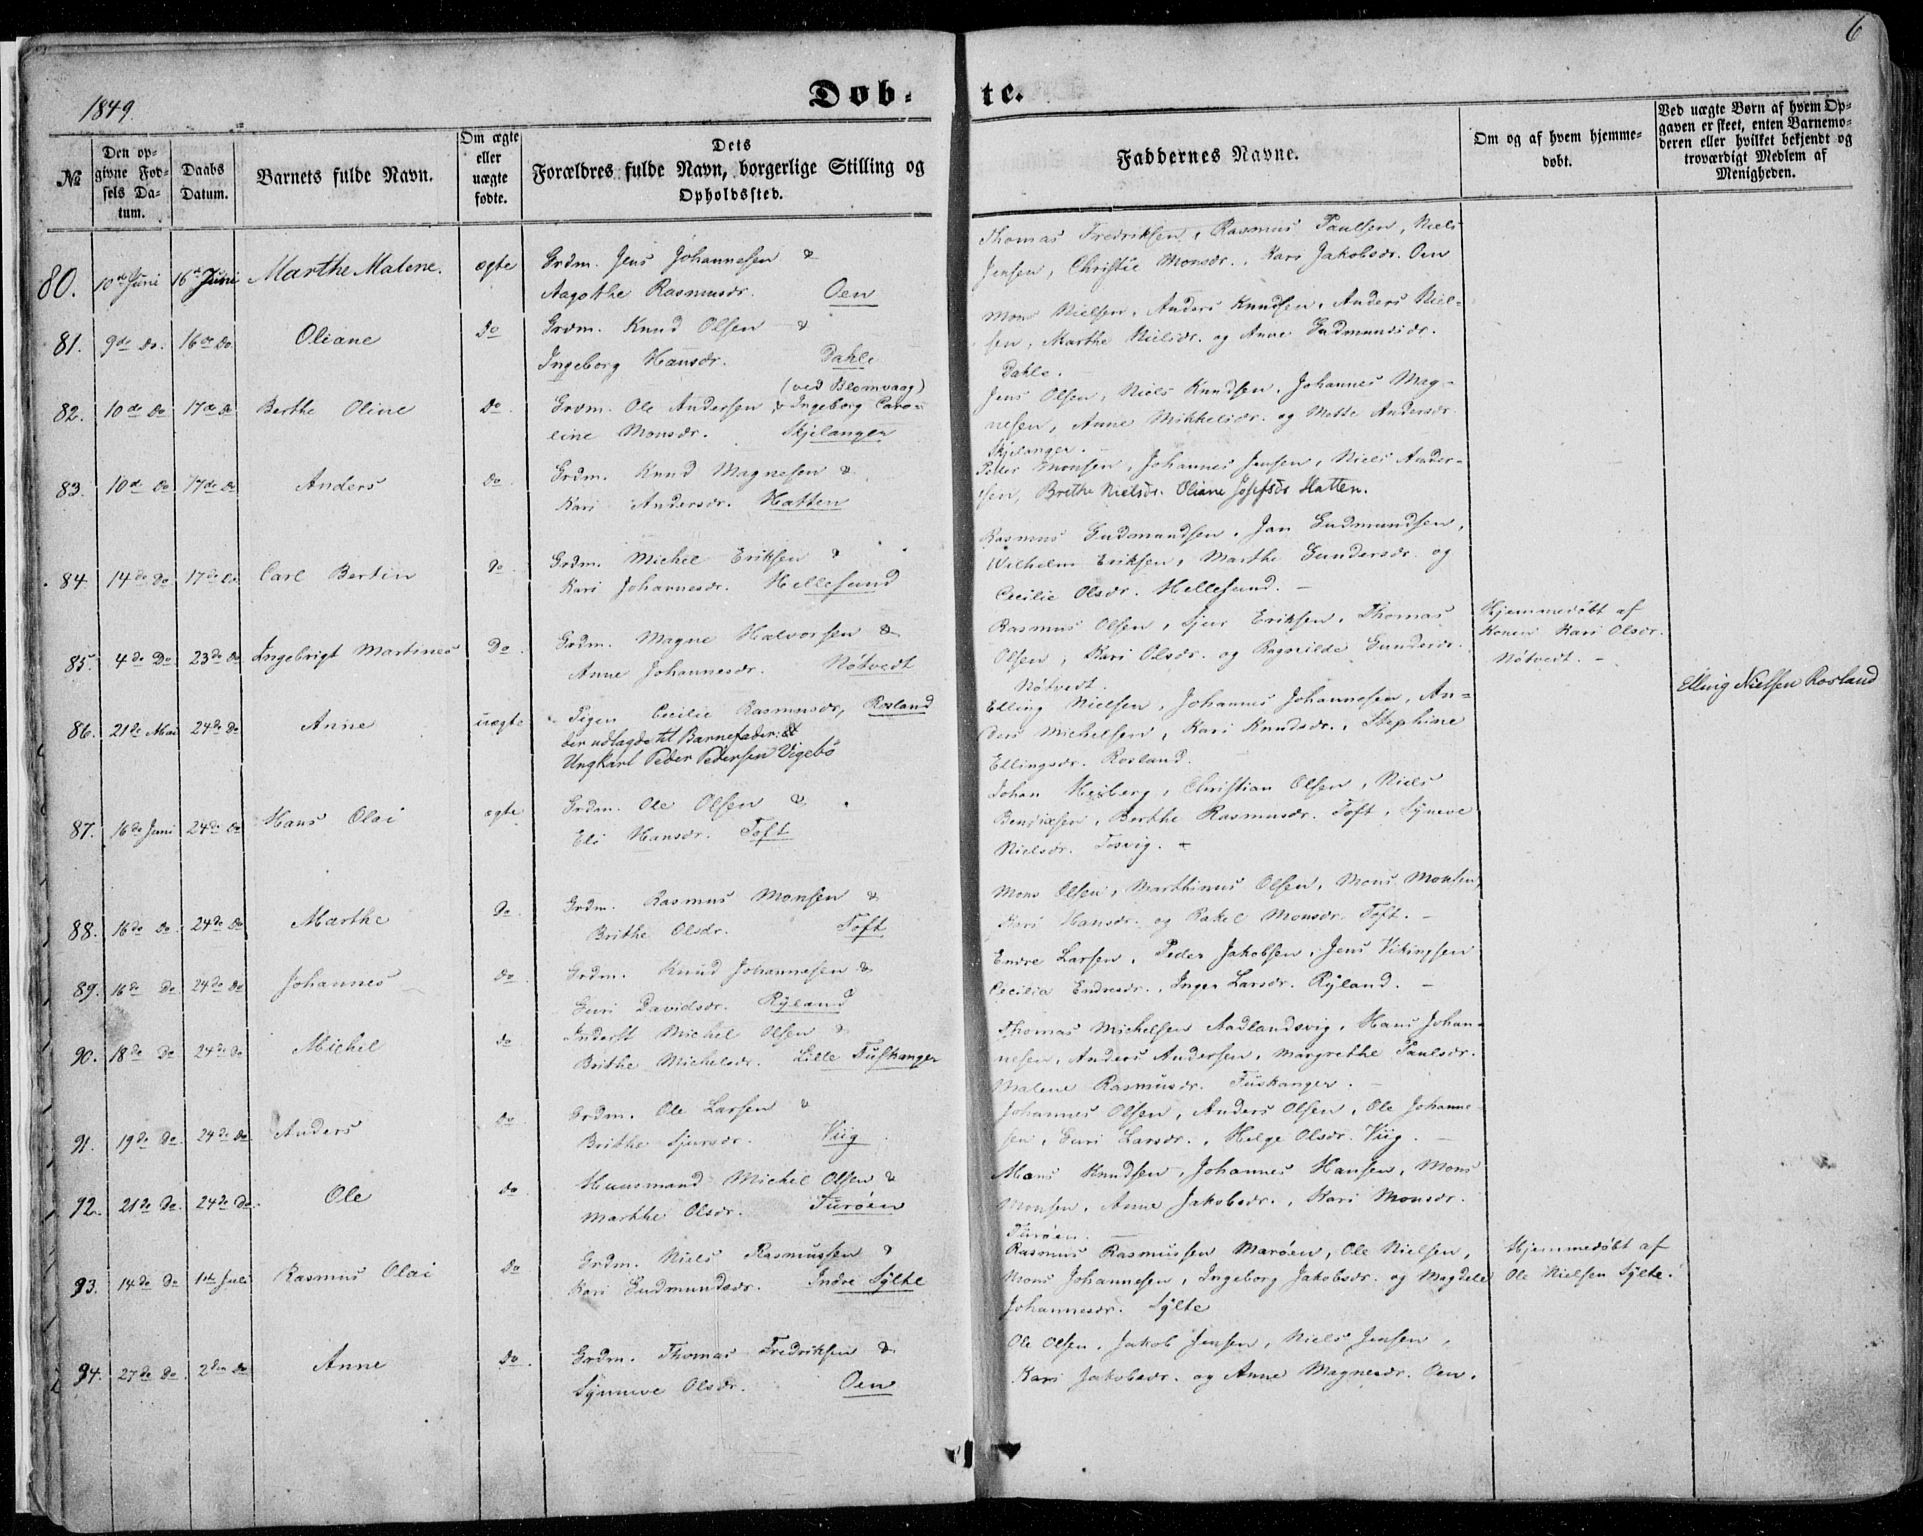 6
1849.
Døb-te.
№
Den opgivne Fødsels Datum.
Daabs Datum.
Barnets fulde Navn.
Om ægte eller uægte fødte.
Dets
Forældres fulde Navn, borgerlige Stilling og
Opholdssted.
Faddernes Navne.
Om og af hvem hjemmedøbt.
Ved uægte Børn af hvem Opgaven er skeet, enten Barnemoderen eller hvilket bekjendt og troværdigt Medlem af Menigheden.
80. 10de Juni 16de Juni Marthe Malene. ægte Grdm. Jens Johannesen &
Aagothe Rasmusdr. Oen
Thomas Fredriksen, Rasmus Paulsen, Niels
Jensen, Christie Monsdr., Kari Jakobsdr. Oen
81. 9de Do. 16de Do Oliane Do Grdm. Knud Olsen &
Ingeborg Hansdr. Dahle
Mons Nielsen, Anders Knudsen, Anders Niel-
sen, Marthe Nielsdr. og Anne Gudmundsdr.
Dahle.
82. 10de Do 17de Do Berthe Oline Do. (ved Blomvaag)
Grdm. Ole Andersen & Ingeborg Caro-
line Monsdr. Skjelanger
Jens Olsen, Niels Knudsen, Johannes Mag-
nesen, Anne Mikkelsdr. og Mette Andersdr
Skjelanger. -
83. 10de Do 17de Do Anders Do. Grdm. Knud Magnesen &
Kari Andersdr. Hatten
Peder Monsen, Johannes Jensen, Niels Ander-
sen, Brithe Nielsdr. Oliane Josefsdr Hatten.
84. 14de Do 17de Do Carl Bertin Do. Grdm. Michel Eriksen &
Kari Johannesdr. Hellesund
Rasmus Gudmundsen, Jan Gudmundsen,
Wilhelm Eriksen, Marthe Gundersdr. og
Cecilie Olsdr. Hellesund. -
85. 4de Do 23de Do Ingebrigt Martines Do. Grdm. Magne Halvorsen &
Anne Johannesdr. Nötvedt
Rasmus Olsen, Sjur Eriksen, Thomas
Olsen, Kari Olsdr. og Ragnilde Gundersdr.
Nötvedt.
Hjemmedøbt af
Konen Kari Olsdr.
Nötvedt. -
86. 21de Mai 24de Do Anne uægte Pigen Cecilie Rasmusdr, Rosland
der udlagde til Barnefader: &
Ungkarl Peder Pedersen Vigebö
Elling Nielsen, Johannes Johannesen, An-
ders Michelsen, Kari Knudsdr., Stephine
Ellingsdr. Rosland.
Elling Nielsen Rosland
87. 16de Juni 24de Do Hans Olai ægte Grdm. Ole Olsen &
Eli Hansdr. Toft
Johan Heiberg, Christian Olsen, Niels
Bendixsen, Berthe Rasmusdr. Toft, Syneve
Nielsdr. Tosvig. -
88. 16de Do 24de Do Marthe Do. Grdm. Rasmus Monsen &
Brithe Olsdr. Toft
Mons Olsen, Marthinus Olsen, Mons Monsen,
Kari Hansdr. og Rakel Monsdr. Toft. -
89. 16de Do. 24de Do Johannes Do. Grdm. Knud Johannesen &
Guri Davidsdr. Ryland
Endre Larsen, Peder Jakobsen, Jens Vikingsen
Cecilia Endresdr., Inger Larsdr. Ryland. -
90. 18de Do 24de Do Michel Do Inderst Michel Olsen &
Brithe Michelsdr. Lille Fuskanger
Thomas Michelsen Aadlandsvig, Hans Johan-
nesen, Anders Andersen, Margrethe Paulsdr.
Malene Rasmusdr. Fuskanger. -
91. 19de Do. 24de Do Anders Do. Grdm. Ole Larsen &
Brithe Sjursdr. Viig
Johannes Olsen, Anders Olsen, Ole Johanne-
sen, Guri Larsdr., Helge Olsdr. Viig. -
92. 21de Do. 24de Do. Ole Do Huusmand Michel Olsen &
Marthe Olsdr. Turöen
Hans Knudsen, Johannes Hansen, Mons
Monsen, Anne Jakobsdr., Kari Monsdr.
Turöen. -
93. 14de Do 1ste Juli Rasmus Olai Do Grdm. Niels Rasmussen &
Kari Gudmundsdr. Indre Sylte
Rasmus Rasmussen Maröen, Ole Nielsen,
Mons Johannesen, Ingeborg Jakobsdr. og Magdele
Johannesdr. Sylte
Hjemmedøbt af
Ole Nielsen Sylte.
94. 27de Do. 2den Do Anne Do. Grdm. Thomas Fredriksen &
Synneve Olsdr. Oen
Ole Olsen, Jakob Jensen, Niels Jensen,
Kari Jakobsdr. og Anne Magnesdr. Oen.